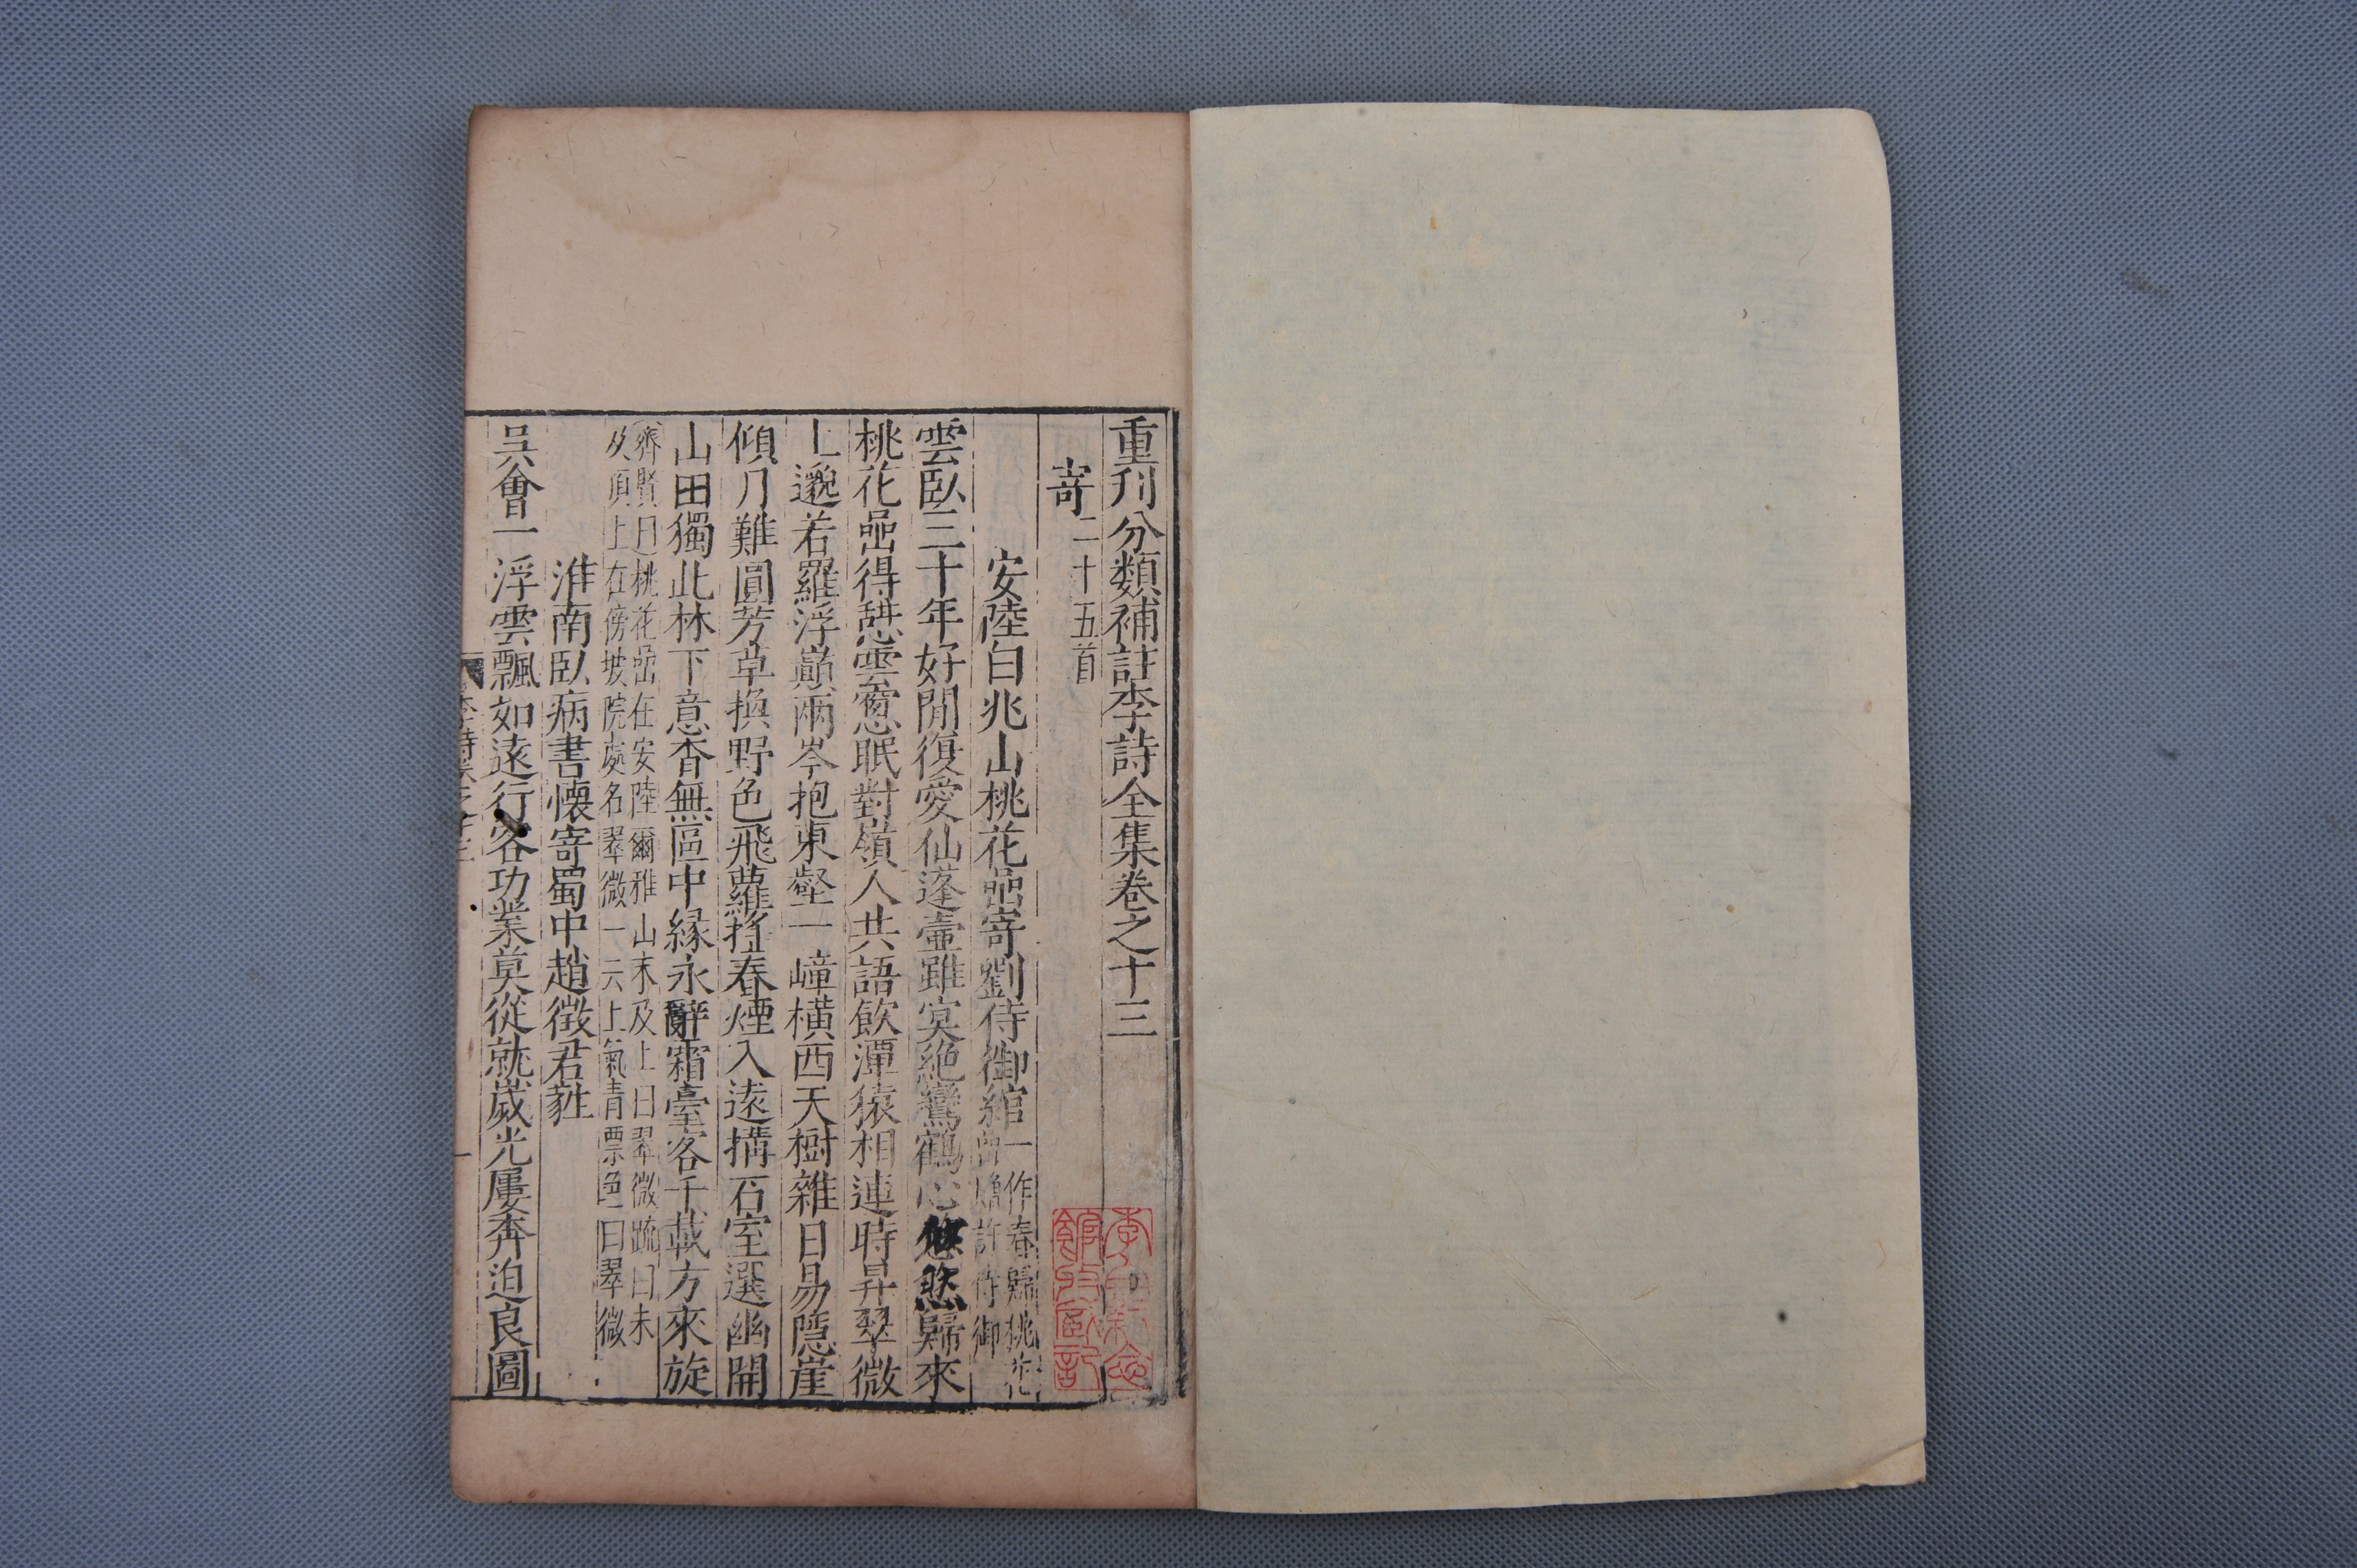 重刊分類補註李詩全集卷之十三
寄二十五首
安陸白兆山桃花嵒寄劉侍御綰一作春歸桃花嵒貽許侍御
雲臥三十年好閒復愛仙蓬壷雖㝠絶鸞鶴心悠然歸來
桃花嵒得憇雲窻眠對嶺人共語飲潭猿相連時昇翠微
上邈若羅浮巓兩岑抱東壑一嶂橫西天樹雜日易隱崖
傾月難圓芳草換野色飛蘿搖春煙入逺搆石室選幽開
山田獨此林下意杳無區中縁永辭霜臺客千載方來旋
齊賢曰桃花嵒在安陸爾雅山未及上曰翠微䟽曰未
及頂上在傍坡陁處名翠微一云上氣青縹色曰翠微
淮南臥病書懐寄蜀中趙徵君蕤
吳會一浮雲飄如逺行客功業莫從就歲光屢奔迫良圖
李詩卷之十三
一